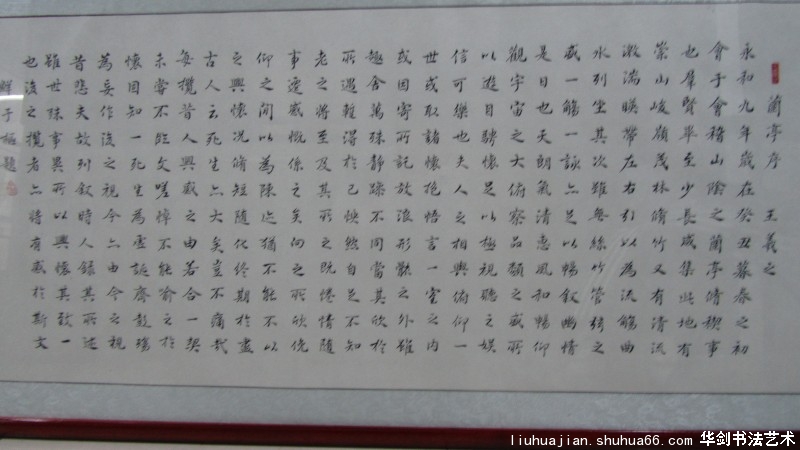 蘭亭序 王羲之
永和九年歲在癸丑暮春之初
會于會稽山陰之蘭亭脩禊事
也羣賢畢至少長咸集此地有
崇山峻嶺茂林脩竹又有清流
激湍暎帶左右引以為流觴曲
水列坐其次雖無絲竹管弦之
盛一觴一詠亦足以暢敘幽情
是日也天朗氣清惠風和暢仰
觀宇宙之大俯察品類之盛所
以遊目騁懷足以極視聽之娛
信可樂也夫人之相與俯仰一
世或取諸懷抱悟言一室之內
或因寄所託放浪形骸之外雖
趣舍萬殊靜躁不同當其欣於
所遇暫得於己怏然自足不知
老之將至及其所之既惓情隨
事遷感慨係之矣向之所欣俛
仰之間以為陳迹猶不能不以
之興懷況脩短隨化終期於盡
古人云死生亦大矣豈不痛哉
每攬昔人興感之由若合一契
未嘗不臨文嗟悼不能喻之於
懷固知一死生為虛誕齊彭殤
為妄作後之視今亦由今之視
昔悲夫故列敘時人錄其所述
雖世殊事異所以興懷其致一
也後之攬者亦將有感於斯文
鮮于樞題
liuhuajian.shuhua66.com 华剑书法艺术